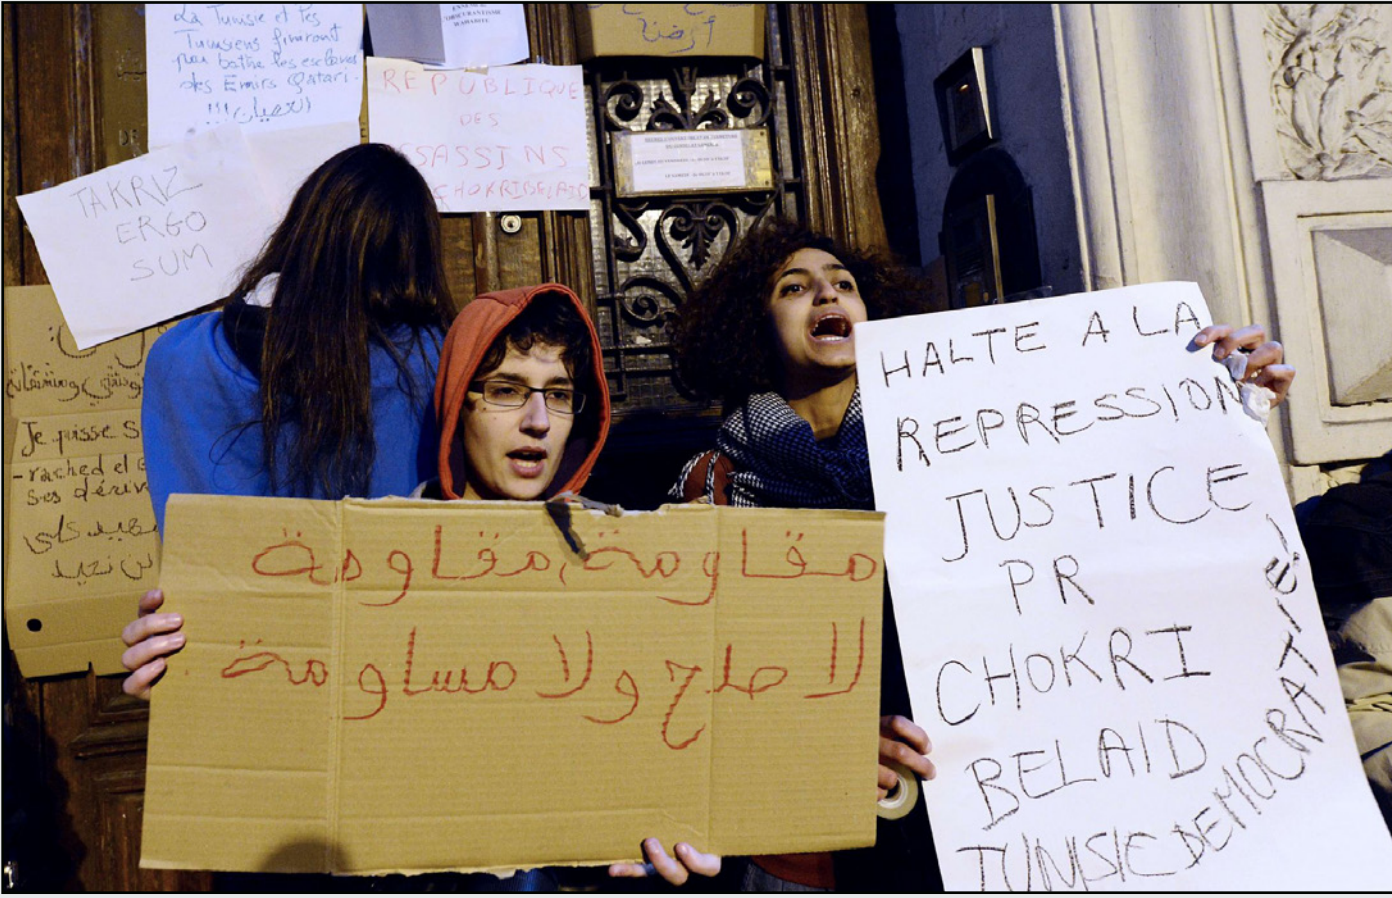 La Tunisie et les
Tunisiens finiront
par battre les esclaves
des Emirs Qatari.
العصيان!!!
أرضنا
REPUBLIQUE
DES
ASSASSINS
CHOKRIBELAID
TAKRIZ
ERGO
SUM
Je pisse s
-rached el
ses dériv
لن نحيد
مقاومة، مقاومة
لا صلح ولا مساومة
HALTE A LA
REPRESSION
JUSTICE
PR
CHOKRI
BELAID
TUNISIE DEMOCRATIE!